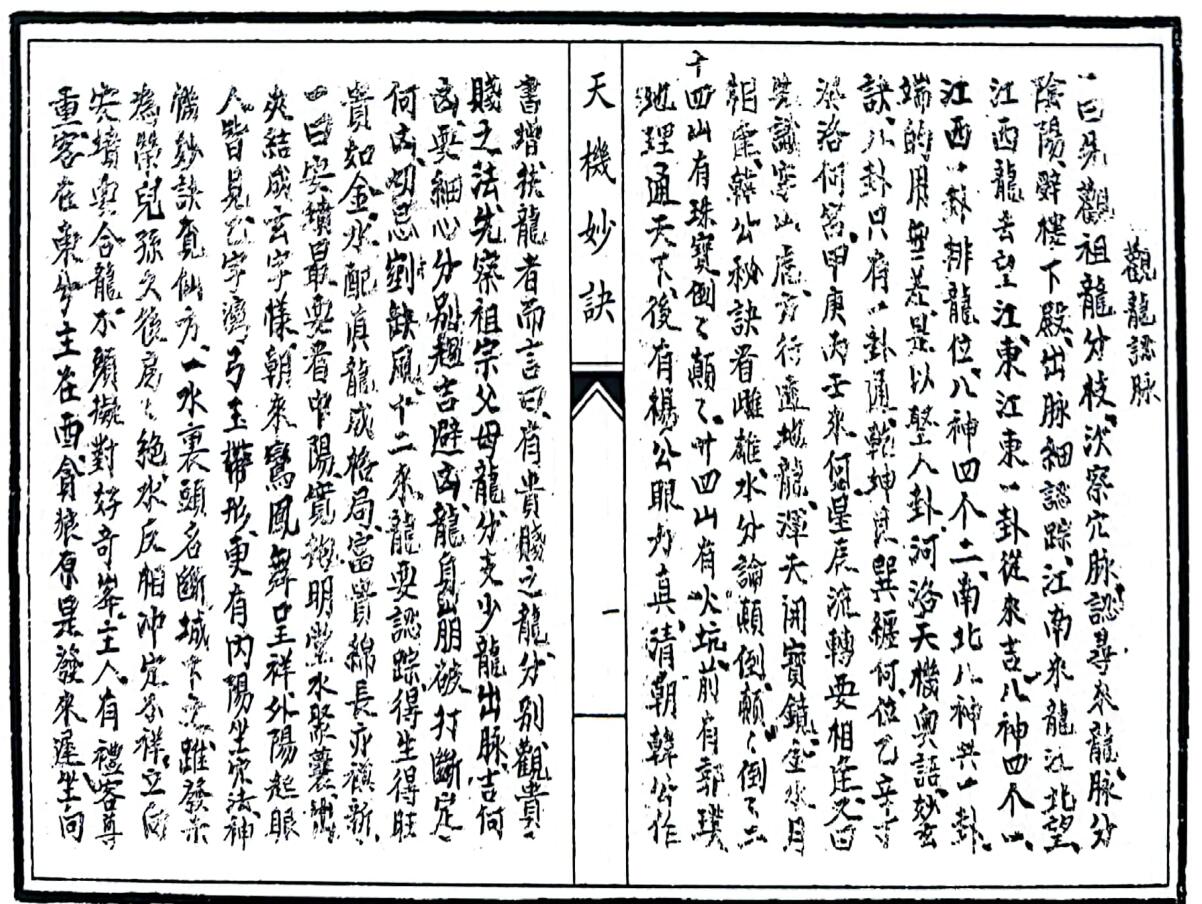 觀龍認脉
一曰先觀祖龍分枝次察穴脉認尋來龍脉分
陰陽辭樓下殿出脉細認踪江南來龍江北望
江西龍去望江東江東一卦從來吉八神四个一
江西一卦排龍位八神四个二南北八神共一卦
端的用無差是以聖人卦河洛天機奧語妙玄
訣八卦只有一卦通乾坤艮巽纏何位乙辛丁
癸落何宮甲庚丙壬來何星辰流轉要相逢又曰
先識穿山虎方行透地龍渾天開寶鏡金水月
相逢韓公秘訣看雌雄水分論顛倒顛々倒々二
十四山有珠寶倒々顛々廿四山有火坑前有郭璞
地理通天下後有楊公眼力真清朝韓公作
天機妙訣
一
書增扶龍者而言曰有貴賤之龍分别觀貴
賤之法先察祖宗父母龍分支少龍出脉吉何
凶要細心分别趨吉避凶龍身崩破打斷定
何凶切忌劍缺風十二來龍要認踪得生得旺
貴如金水配真龍成格局富貴綿長亦
一曰安墳最要看中陽明堂水聚囊
夾結成玄字樣朝來鸞鳳舞呈祥外陽起眼
人皆見乙字灣弓玉帶形更有内陽坐穴法神
機妙訣覓仙方一水裏頭名斷城下之雖發亦
為榮兒孫久後房々絶水反相冲定不祥立向
安墳要合龍不頭擬對好奇峯主人有禮客尊
重客在東兮主在西貪狼原是發來遲坐向